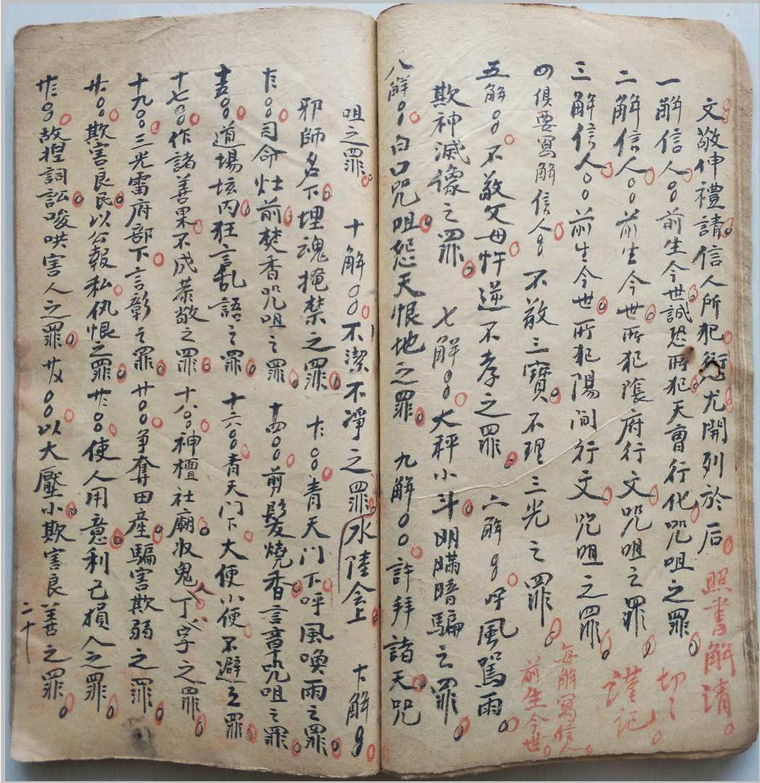 文敬伸禮請信人所犯愆尤開列於后 照書解清
一解信人〇〇前生今世誠恐所犯天曹行化咒咀之罪 切之
二解信人〇〇前生今世所犯陰府行文咒咀之罪 謹記
三解信人〇〇前生今世所犯陽间行文咒咀之罪
四俱要寫解信人〇〇不敬三寶不理三光之罪 每解寫信人前生今世
五解〇〇不敬父母忤逆不孝之罪 六解〇〇呼風罵雨
欺神滅像之罪 七解〇〇大秤小斗明瞞暗騙之罪
八解〇〇白口咒咀怨天恨地之罪 九解〇〇許拜諸天咒
咀之罪 十解〇〇不潔不凈之罪 水陸会上 十解〇〇
邪師名下埋魂掩禁之罪 〇〇青天门下呼風喚雨之罪
〇〇司命灶前焚香咒咀之罪 十四〇〇剪髮燒香言章咒咀之罪
〇〇道場垓内狂言乱語之罪 十六〇〇青天门下大便小便不避之罪
十七〇〇作諸善果不成恭敬之罪 十八〇〇神檀社廟收鬼人丁字之罪
十九〇〇三光雷府部下言彰之罪 廿〇〇争奪田産騙害欺弱之罪
〇〇欺害良民以公報私仇恨之罪 〇〇使人用意利己損人之罪
〇〇故捏詞訟唆哄害人之罪 〇〇以大壓小欺害良善之罪
二十